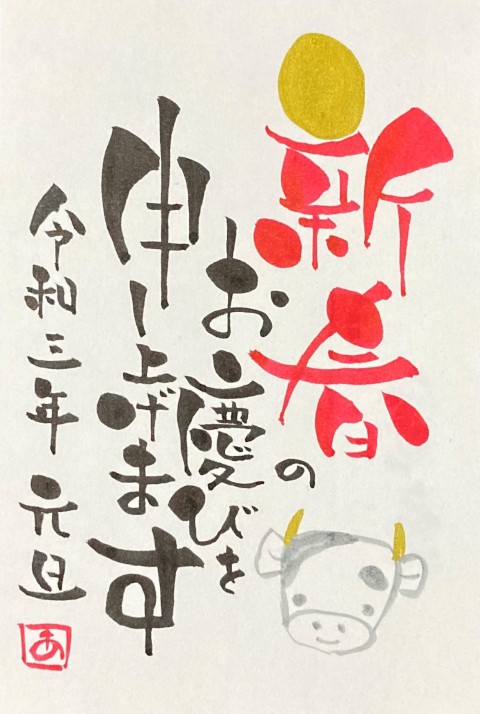 新春
の
お慶びを
申し上げます
令和三年 元旦
あ